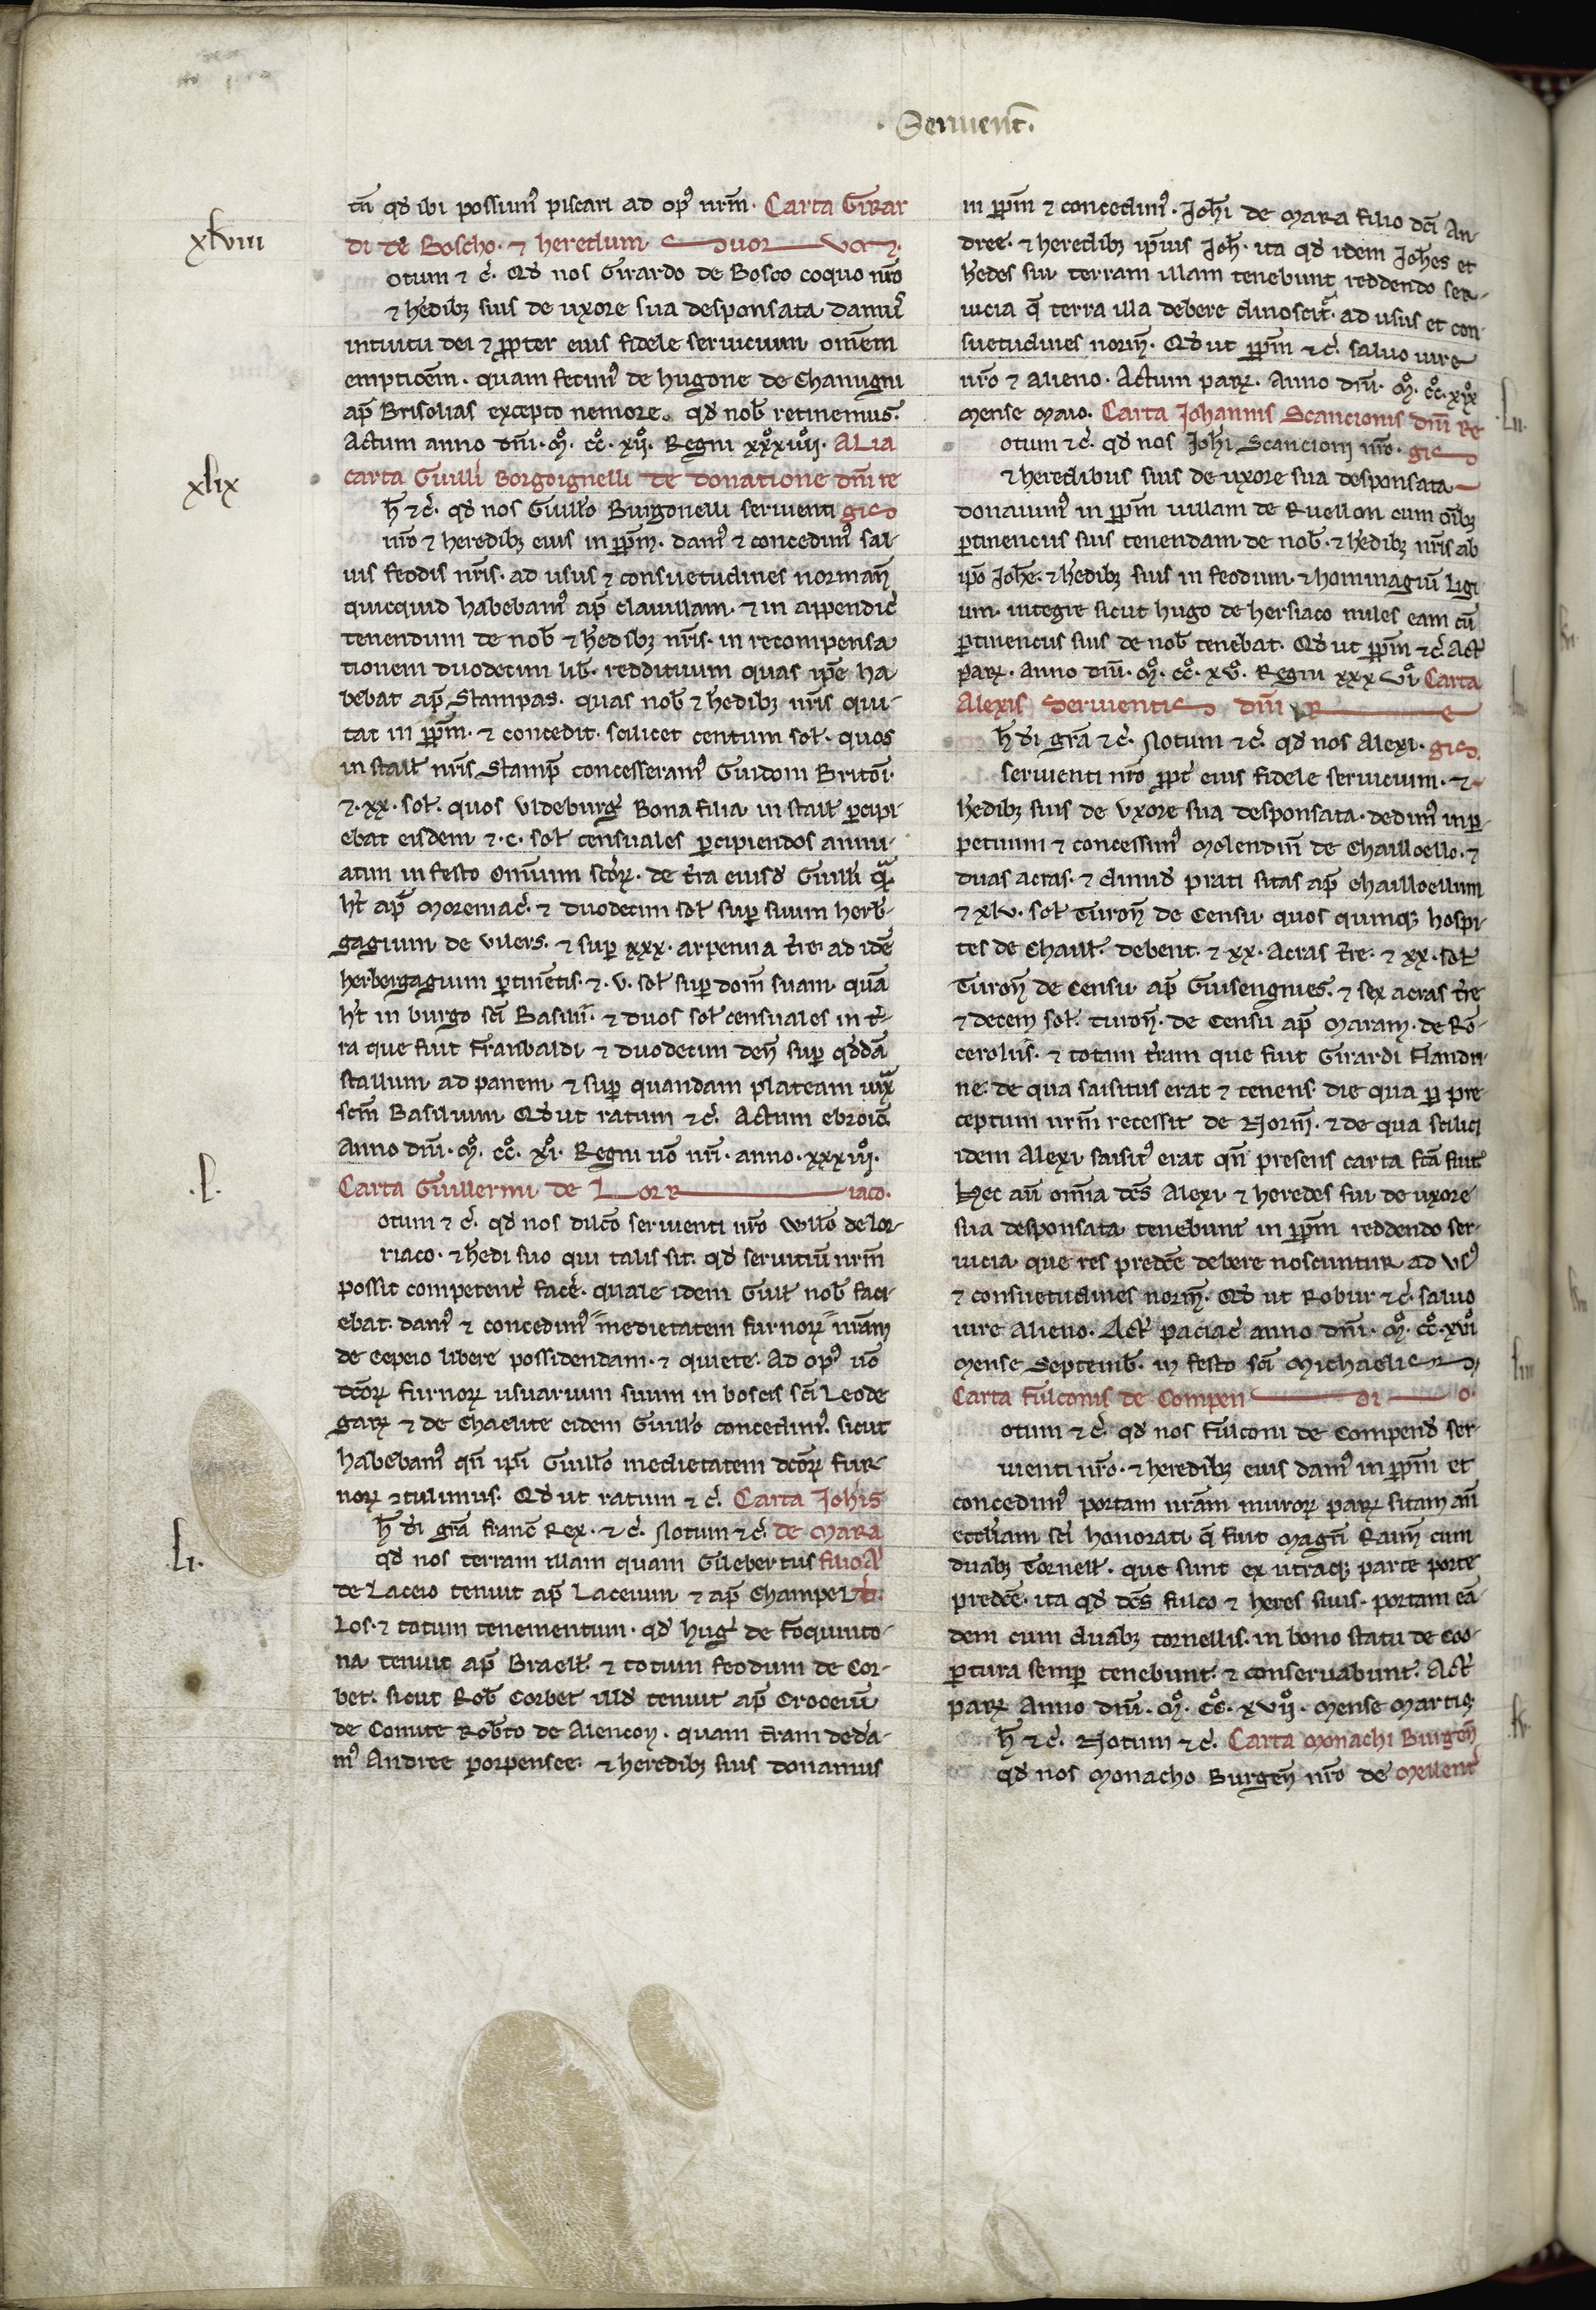 · Seruient̄ ·
xlviii
xlix
·l·
li·
tn̄ qd̓ ibi possium᷒ piscari ad op᷒ nr̄m · Carta Girar
di de Boscho · ⁊ heredum suor vo
otum ⁊ c̓ · Qd̓ nos Girardo de Bosco coquo nr̄o
⁊ h̓edibꝫ suis de uxore sua desponsata dam᷒
intuitu dei ⁊ ꝓpter eius fidele seruicium om̄em
empticōem · quam fecim᷒ de hugone de Chauigni
ap̄ Brisolias excepto nemore · qd̓ nob̄ retinemus ·
Actum anno dn̄i · m̊ · cc̊ · xii̊ · Regni xxx̊iiii̊ · ALia
carta Guilli̓ Borgoignelli de donatione dn̄i re
ph̄ ⁊ c̓ · qd̓ nos Guill̓o Burgonelli seruienti gis
nr̄o ⁊ heredibꝫ eius in ꝑpm̄ · dam᷒ ⁊ concedim᷒ sal-
uis feodis nr̄is · ad usus ⁊ consuetudines normañ
quicquid habebam᷒ ap̄ clauillam · ⁊ in appendic̓
tenendum de nob̄ ⁊ h̓edibꝫ nr̄is · in recompensa
tionem duodecim lib̄ · reddituum quas ip̄e ha
bebat ap̄ Stampas · quas nob̄ ⁊ h̓edibꝫ nr̄is qui-
tat in ꝑpm̄ · ⁊ concedit · scilicet centum sol̓ · quos
in stall̓ nr̄is Stamp̄ concesseram᷒ Guidoni Britōi ·
⁊ · xx · sol̓ · quos vldeburg̓ Bona filia in stall̓ ꝑcipi-
ebat eisdem ⁊ · c · sol̓ censuales ꝑcipiendos annu-
atim in festo omnium scōꝝ · de t̓ra eiusd̓ Guilli̓ qᷓ
h̓t ap̄ moreniac̓ · ⁊ duodecim sol̓ suꝑ suum herb̄-
gagium de vilers · ⁊ suꝑ xxx · arpenna t̓re · ad idē
herbergagium ꝑtinētis · ⁊ · v · sol̓ suꝑ dom̄ suam · quā
h̓t in burgo sc̄i Basilii̓ · ⁊ duos sol̓ censuales in t̓-
ra que fuit franbaldi ⁊ duodecim den̄ suꝑ qd̓dā
stallum ad panem ⁊ suꝑ quandam plateam iuxᷓ
scm̄ Basilium Qd̓ ut ratum ⁊ c̓ · Actum ebroic̄
Anno dn̄i · m̊ · cc̊ · xi̊ · Regni uō nr̄i · anno · xxxiii̊ ·
Carta Guillermi de Lorr iaco ·
otum ⁊ c̓ · qd̓ nos dilc̄o seruienti nr̄o Will̓o de lor-
riaco · ⁊ h̓edi suo qui talis sit · qd̓ seruitiū nr̄m
possit competent̓ fac̓e · quale idem Guill̓ nob̄ faci-
ebat · dam᷒ ⁊ concedim᷒ medietatem furnoꝝ nr̄am
de Cepeio libere possidendam · ⁊ quiete · Ad op᷒ uō
dc̄oꝝ furnoꝝ usuarium suum in boscis sc̄i Leode
garii ⁊ de Chaelite eidem Guill̓o concedim᷒ · sicut
habebam᷒ qn̄ ip̄i Guill̓o medietatem dc̄oꝝ fur-
noꝝ ⁊tulimus · Qd̓ ut ratum ⁊ c̓ · Carta Joh̓is
ph̄ di̓ gr̄a franc̄ Rex · ⁊ c̓ · Notum ⁊ c̓ · de mara
qd̓ nos terram illam quam Gilebertus filio A
de Laceio tenuit ap̄ Laceium ⁊ ap̄ Champel
los · ⁊ totum tenementum · qd̓ hug̓ de foquinto-
na tenuit ap̄ Braell̓ · ⁊ totum feodum de Cor-
bet · sicut Rob̄ Corbet illd̓ tenuit ap̄ Croceiū
de Comite Rob̓to de Alencon · quam t̓ram deda-
m᷒ Andree ꝑorpensee · ⁊ heredibꝫ suis donamus
in ꝑpm̄ ⁊ concedim᷒ · Joh̓i de mara filio dc̄i An-
dree · ⁊ heredibꝫ ip̄ius Joh̄ · ita qd̓ idem Joh̓es et
h̓edes sui terram illam tenebunt reddendo ser-
uicia q̄ terra illa debere dinoscit̓ · ad usus et con-
suetudines norm̄ · Qd̓ ut ꝑpm̄ ⁊ c̓ · saluo iure
nr̄o ⁊ alieno · Actum pariꝝ · Anno dn̄i · m̊ · cc̊ · xix̊
mense maio · Carta Johannis Scancionis dn̄i Re
otum ⁊ c̓ · qd̓ nos Joh̓i Scancioni nr̄o · gis
⁊ heredibus suis de uxore sua desponsata
donauim᷒ in ꝑpm̄ uillam de Ruellon cum oībꝫ
ꝑtinenciis suis tenendam · de nob̄ · ⁊ h̓edibꝫ nr̄is ab
ip̄o Joh̓e · ⁊ h̓edibꝫ suis in feodum · ⁊ hommagiū ligi
um · integre sicut hugo de hersiaco miles eam cū
ꝑtinenciis suis de nob̄ tenebat · Qd̓ ut ꝑpm̄ ⁊ c̓ Act̓
pariꝝ · Anno dn̄i · m̊ · cc̊ · xv̊ · Regni xxxvi̊ · Carta
Alexis Seruientis dn̄i R e
ph̄ di̓ gr̄a ⁊ c̓ · Notum ⁊ c̓ · qd̓ nos Alexi · gis ·
seruienti nr̄o ꝓpt̓ eius fidele seruicium · ⁊
h̓edibꝫ suis de vxore sua desponsata · dedim᷒ in ꝑ-
petuum ⁊ concessim᷒ molendinū de Chailloello · ⁊
duas acras · ⁊ dimid̓ prati sitas ap̄ chailloellum
⁊ xlv · sol̓ Turoñ de Censu quos quinqꝫ hospi-
tes de Chaill̓ · debent · ⁊ xx · Acras t̓re · ⁊ xx · sol̓
Turoñ de Censu ap̄ Guisengnies · ⁊ sex acras t̓re
⁊ decem sol̓ · turoñ · de Censu ap̄ maram · de Ro-
ceroliis̄ · ⁊ totam t̓ram que fuit Girardi flandri-
ne · de qua saisitus erat ⁊ tenens · die qua ꝑ pre
ceptum nr̄m recessit de Norm̄ · ⁊ de qua scilic̓
idem Alexi saisit᷒ erat qn̄ presens carta fc̄a fuit
Hec aū om̄ia dc̄s Alexi ⁊ heredes sui de uxore
sua desponsata tenebunt in ꝑpm̄ reddendo ser-
uicia que res predc̄e debere noscuntur ad vs᷒
⁊ consuetudines norm̄ · Qd̓ ut Robur ⁊ c̓ · saluo
iure Alieno · Act̓ paciac̓ anno dn̄i · m̊ · cc̊ · xvii̊
mense Septemb̄ · in festo sc̄i michaelis
Carta fulconis de Compen di o ·
otum ⁊ c̓ · qd̓ nos fulconi de Compend̓ ser-
uienti nr̄o · ⁊ heredibꝫ eius dam᷒ in ꝑpm̄ et
concedim᷒ portam nr̄am muroꝝ pariꝝ sitam an̄
eccl̓iam sc̄i honorati q̄ fuit magr̄i Raim̄ cum
duabꝫ Tornell̓ · que sunt ex utraqꝫ parte porte
predc̄e · ita qd̓ dc̄s fulco ⁊ heres suus portam eā-
dem cum duabꝫ tornellis · in bono statu de coo-
ꝑtura semꝑ tenebunt · ⁊ conseruabunt · Act̓
pariꝝ Anno dn̄i · m̊ · cc̊ · xvii̊ · mense martio ·
ph̄ ⁊ c̓ · Notum ⁊ c̓ · Carta monachi Burgoñ
qd̓ nos monacho Burgeñ nr̄o de mellent̓
lii·